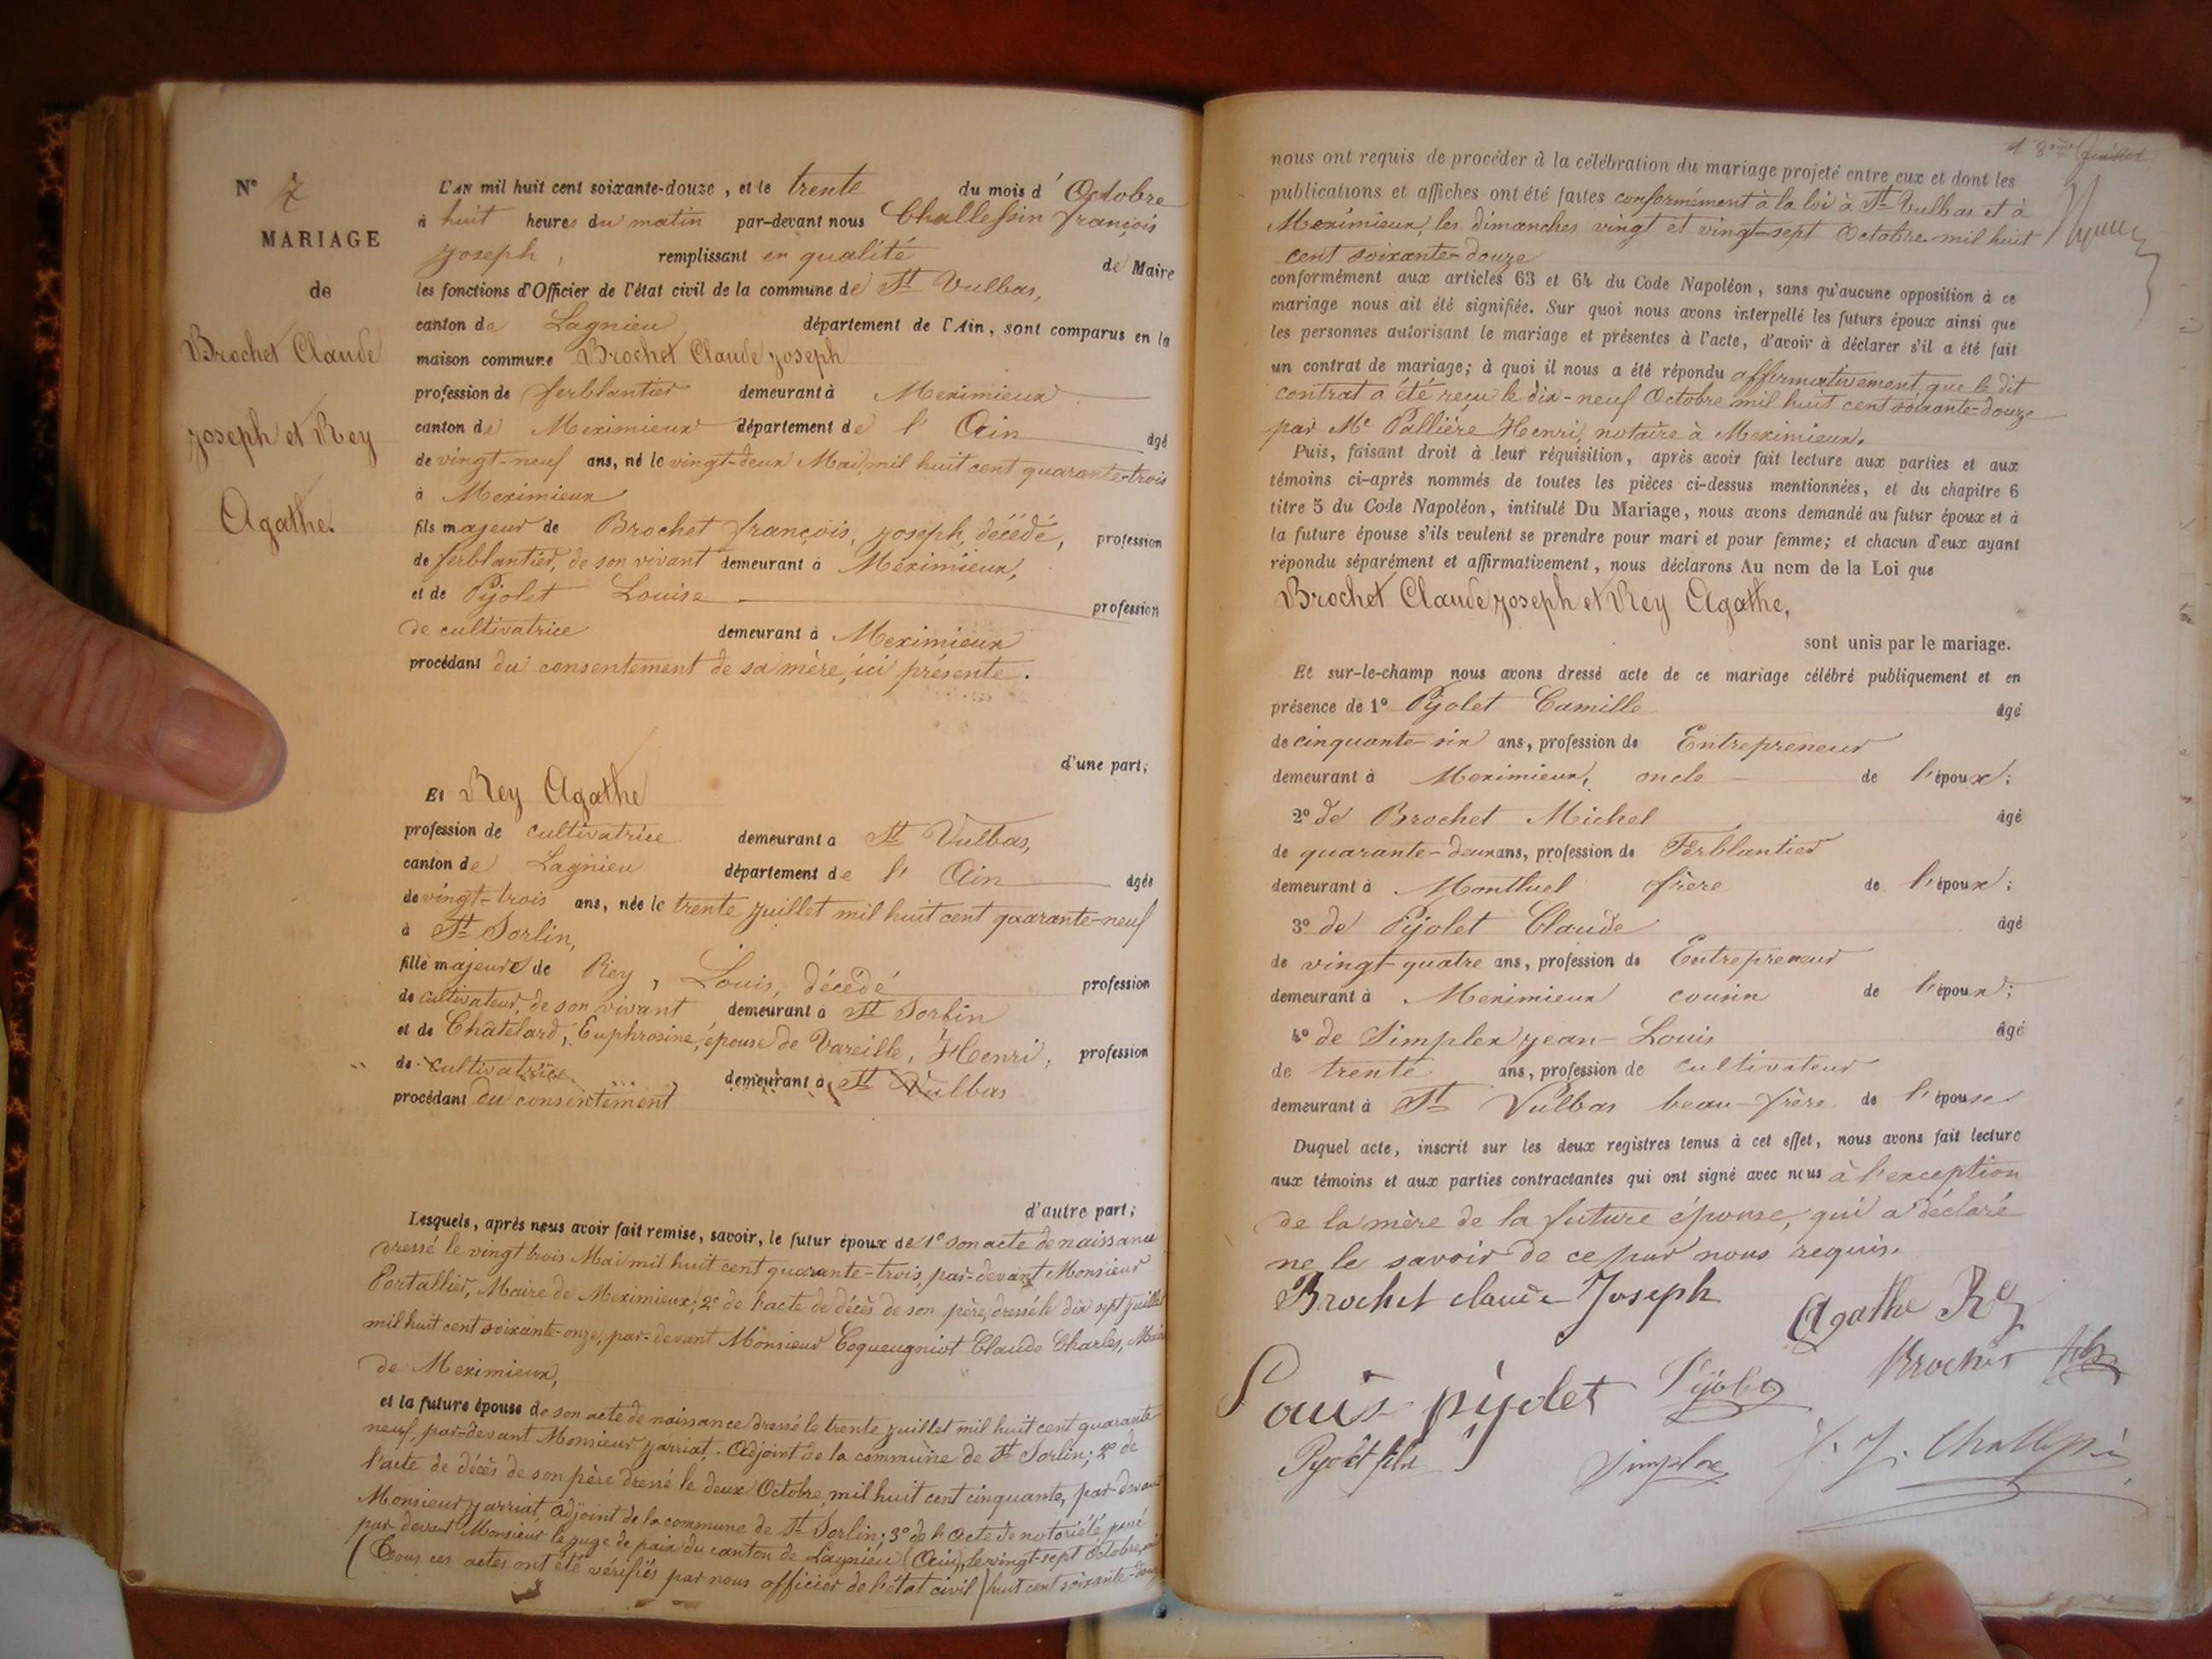 N° 7
MARIAGE
de
Brochet Claude
Joseph et Rey
Agathe.
L'AN mil huit cent soixante-douze, et le trente du mois d'Octobre
à huit heures du matin par-devant nous Challessin françois
Joseph, remplissant en qualité de Maire
les fonctions d'Officier de l'état civil de la commune de St Vulbas,
canton de Lagnieu département de l'Ain, sont comparus en la
maison commune Brochet Claude Joseph
profession de ferblantier demeurant à Meximieux
canton de Meximieux département de l'Ain âgé
de vingt-neuf ans, né le vingt-deux Mai mil huit cent quarante-trois
à Meximieux
fils majeur de Brochet françois, Joseph, décédé, profession
de ferblantier, de son vivant demeurant à Meximieux,
et de Pijolet Louise profession
de cultivatrice demeurant à Meximieux
procédant du consentement de sa mère, ici présente.
d'une part;
Et Rey Agathe
profession de cultivatrice demeurant à St Vulbas,
canton de Lagnieu département de l'Ain âgée
de vingt-trois ans, née le trente Juillet mil huit cent quarante-neuf
à St Sorlin,
fille majeure de Rey, Louis, décédé profession
de cultivateur, de son vivant demeurant à St Sorlin
et de Châtelard, Euphrosine, épouse de Vareille, Henri, profession
de cultivatrice demeurant à St Vulbas
procédant du consentement
d'autre part;
Lesquels, après nous avoir fait remise, savoir, le futur époux de 1° son acte de naissance
dressé le vingt trois Mai mil huit cent quarante-trois, par-devant Monsieur
Portallier, Maire de Meximieux; 2° de l'acte de décès de son père, dressé le dix sept Juillet
mil huit cent soixante-onze, par-devant Monsieur Coqueugniot Claude Charles, Maire
de Meximieux,
et la future épouse de son acte de naissance dressé le trente Juillet mil huit cent quarante
neuf, par-devant Monsieur Jarriat, Adjoint de la commune de St Sorlin; 2° de
l'acte de décès de son père dressé le deux Octobre, mil huit cent cinquante, par-devant
Monsieur Jarriat, Adjoint de la commune de St Sorlin; 3° de l'Acte de notoriété, passé
par devant Monsieur le Juge de paix du canton de Lagnieu (Ain), le vingt-sept Octobre, mil
(Tous ces actes ont été vérifiés par nous officier de l'état civil) huit cent soixante-douze
8ème feuillet
nous ont requis de procéder à la célébration du mariage projeté entre eux et dont les
publications et affiches ont été faites conformément à la loi à St Vulbas et à
Meximieux, les dimanches vingt et vingt-sept Octobre mil huit
cent soixante-douze
conformément aux articles 63 et 64 du Code Napoléon, sans qu'aucune opposition à ce
mariage nous ait été signifiée. Sur quoi nous avons interpellé les futurs époux ainsi que
les personnes autorisant le mariage et présentes à l'acte, d'avoir à déclarer s'il a été fait
un contrat de mariage; à quoi il nous a été répondu affirmativement, que le dit
contrat a été reçu le dix-neuf Octobre mil huit cent soixante-douze
par Me Pallière Henri, notaire à Meximieux.
Puis, faisant droit à leur réquisition, après avoir fait lecture aux parties et aux
témoins ci-après nommés de toutes les pièces ci-dessus mentionnées, et du chapitre 6
titre 5 du Code Napoléon, intitulé Du Mariage, nous avons demandé au futur époux et à
la future épouse s'ils veulent se prendre pour mari et pour femme; et chacun d'eux ayant
répondu séparément et affirmativement, nous déclarons Au nom de la Loi que
Brochet Claude Joseph et Rey Agathe,
sont unis par le mariage.
Et sur-le-champ nous avons dressé acte de ce mariage célébré publiquement et en
présence de 1° Pijolet Camille âgé
de cinquante-six ans, profession de Entrepreneur
demeurant à Meximieux, oncle de l'époux;
2° de Brochet Michel âgé
de quarante-deux ans, profession de Ferblantier
demeurant à Montluel frère de l'époux;
3° de Pijolet Claude âgé
de vingt-quatre ans, profession de Entrepreneur
demeurant à Meximieux cousin de l'époux;
4° de Simplex Jean-Louis âgé
de trente ans, profession de cultivateur
demeurant à St Vulbas beau-frère de l'épouse
Duquel acte, inscrit sur les deux registres tenus à cet effet, nous avons fait lecture
aux témoins et aux parties contractantes qui ont signé avec nous à l'exception
de la mère de la future épouse, qui a déclaré
ne le savoir de ce par nous requis.
Brochet claude Joseph Agathe Rey
Louis pijolet Pijolet Brochet fils
Pijolet fils Simplex F. J. Challessin